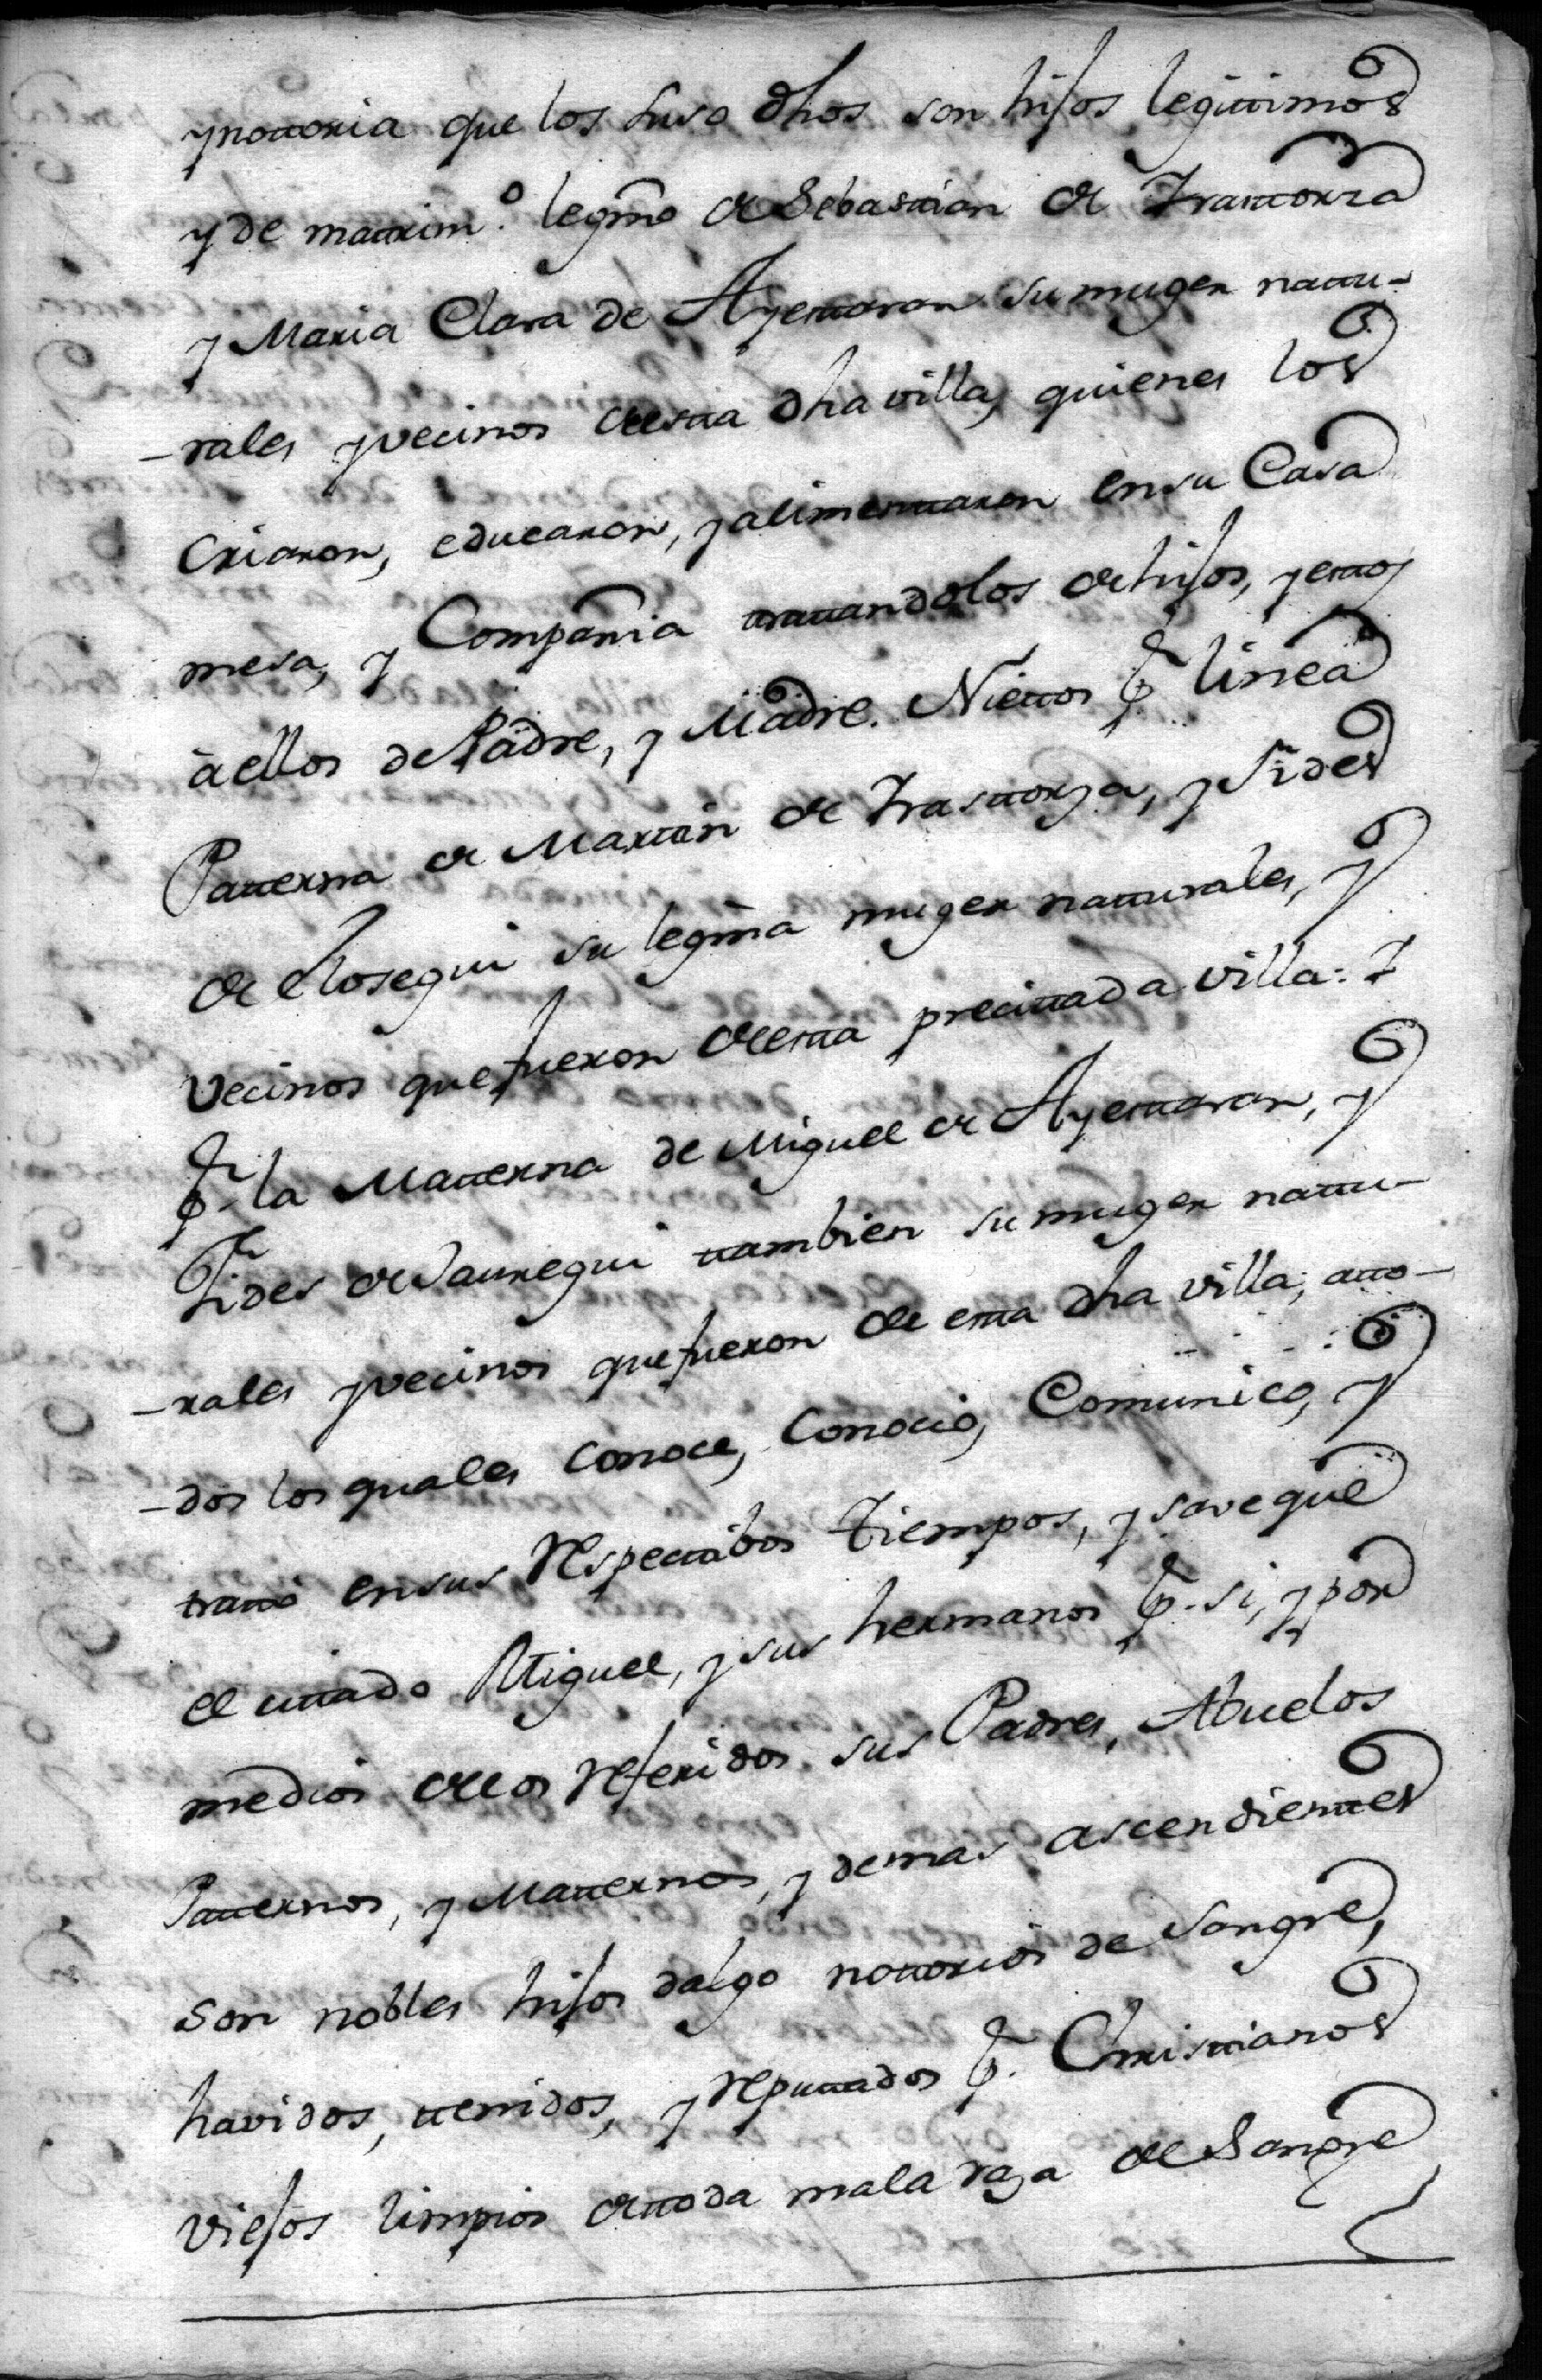 ynottoria que los suso dhos son hijos legittimos
y de mattrim.º legmo de Sebasttian de Yrasttorza
y Maria Clara de Ayesttaran su muger nattu-
-rales y vecinos de estta dha villa, quienes los
Criaron, educaron, y alimenttaron en su Casa
mesa, y Compañia ttrattandolos de hijos, y esttos
à ellos de Padre, y Madre. Niettos p.r linea
Patterna de Marttin de Yrasttorza, y Fides
de Elosegui su legma muger natturales, y
Vecinos que fueron de estta precittada villa: Y
p.r la Matterna de Miguel de Ayesttaran, y
Fides de Jauregui ttambien su muger nattu-
-rales y vecinos que fueron de estta dha villa; atto-
-dos los quales conoce, conocio, Comunico, y
trattò en sus respecttibos Tiempos, y save que
el cittado Miguel, y sus hermanos p.r si, y por
medios de los referidos sus Padres, Abuelos
Patternos, y Matternos, y demas ascendienttes
son nobles hijos dalgo nottorios de Sangre,
havidos, ttenidos, y reputtados p.r Christtianos
viejos limpios de ttoda mala raza de Sangre